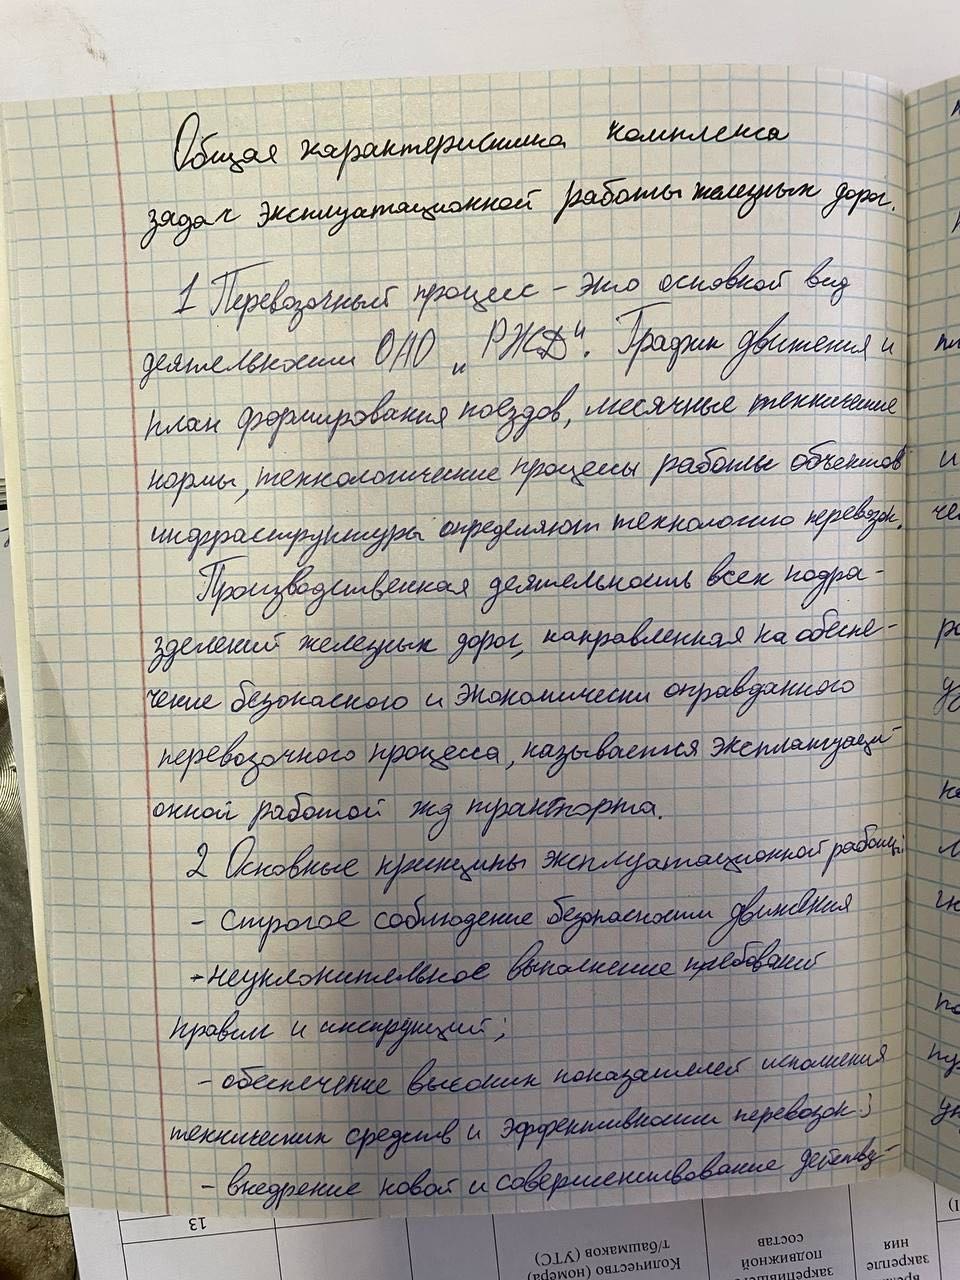 Общая характеристика комплекса
задач эксплуатационной работы железных дорог.
1 Перевозочный процесс – это основной вид
деятельности ОАО „РЖД“. График движения и
план формирования поездов, месячные технические
нормы, технологические процессы работы объектов
инфраструктуры определяют технологию перевозок.
Производственная деятельность всех подра-
зделений железных дорог, направленная на обеспе-
чение безопасного и экономически оправданного
перевозочного процесса, называется эксплатуаци-
онной работой жд транспорта.
2 Основные принципы эксплуатационной работы:
- строгое соблюдение безопасности движения
- неуклонительное выполнение требований
правил и инструкций;
- обеспечение высоких показателей исполнения
технических средств и эффективности перевозок;
- внедрение новой и совершенствование действу-
13
Количество (номера)
т/башмаков (УТС)
закрепившего
подвижной
состав
закрепле
ния